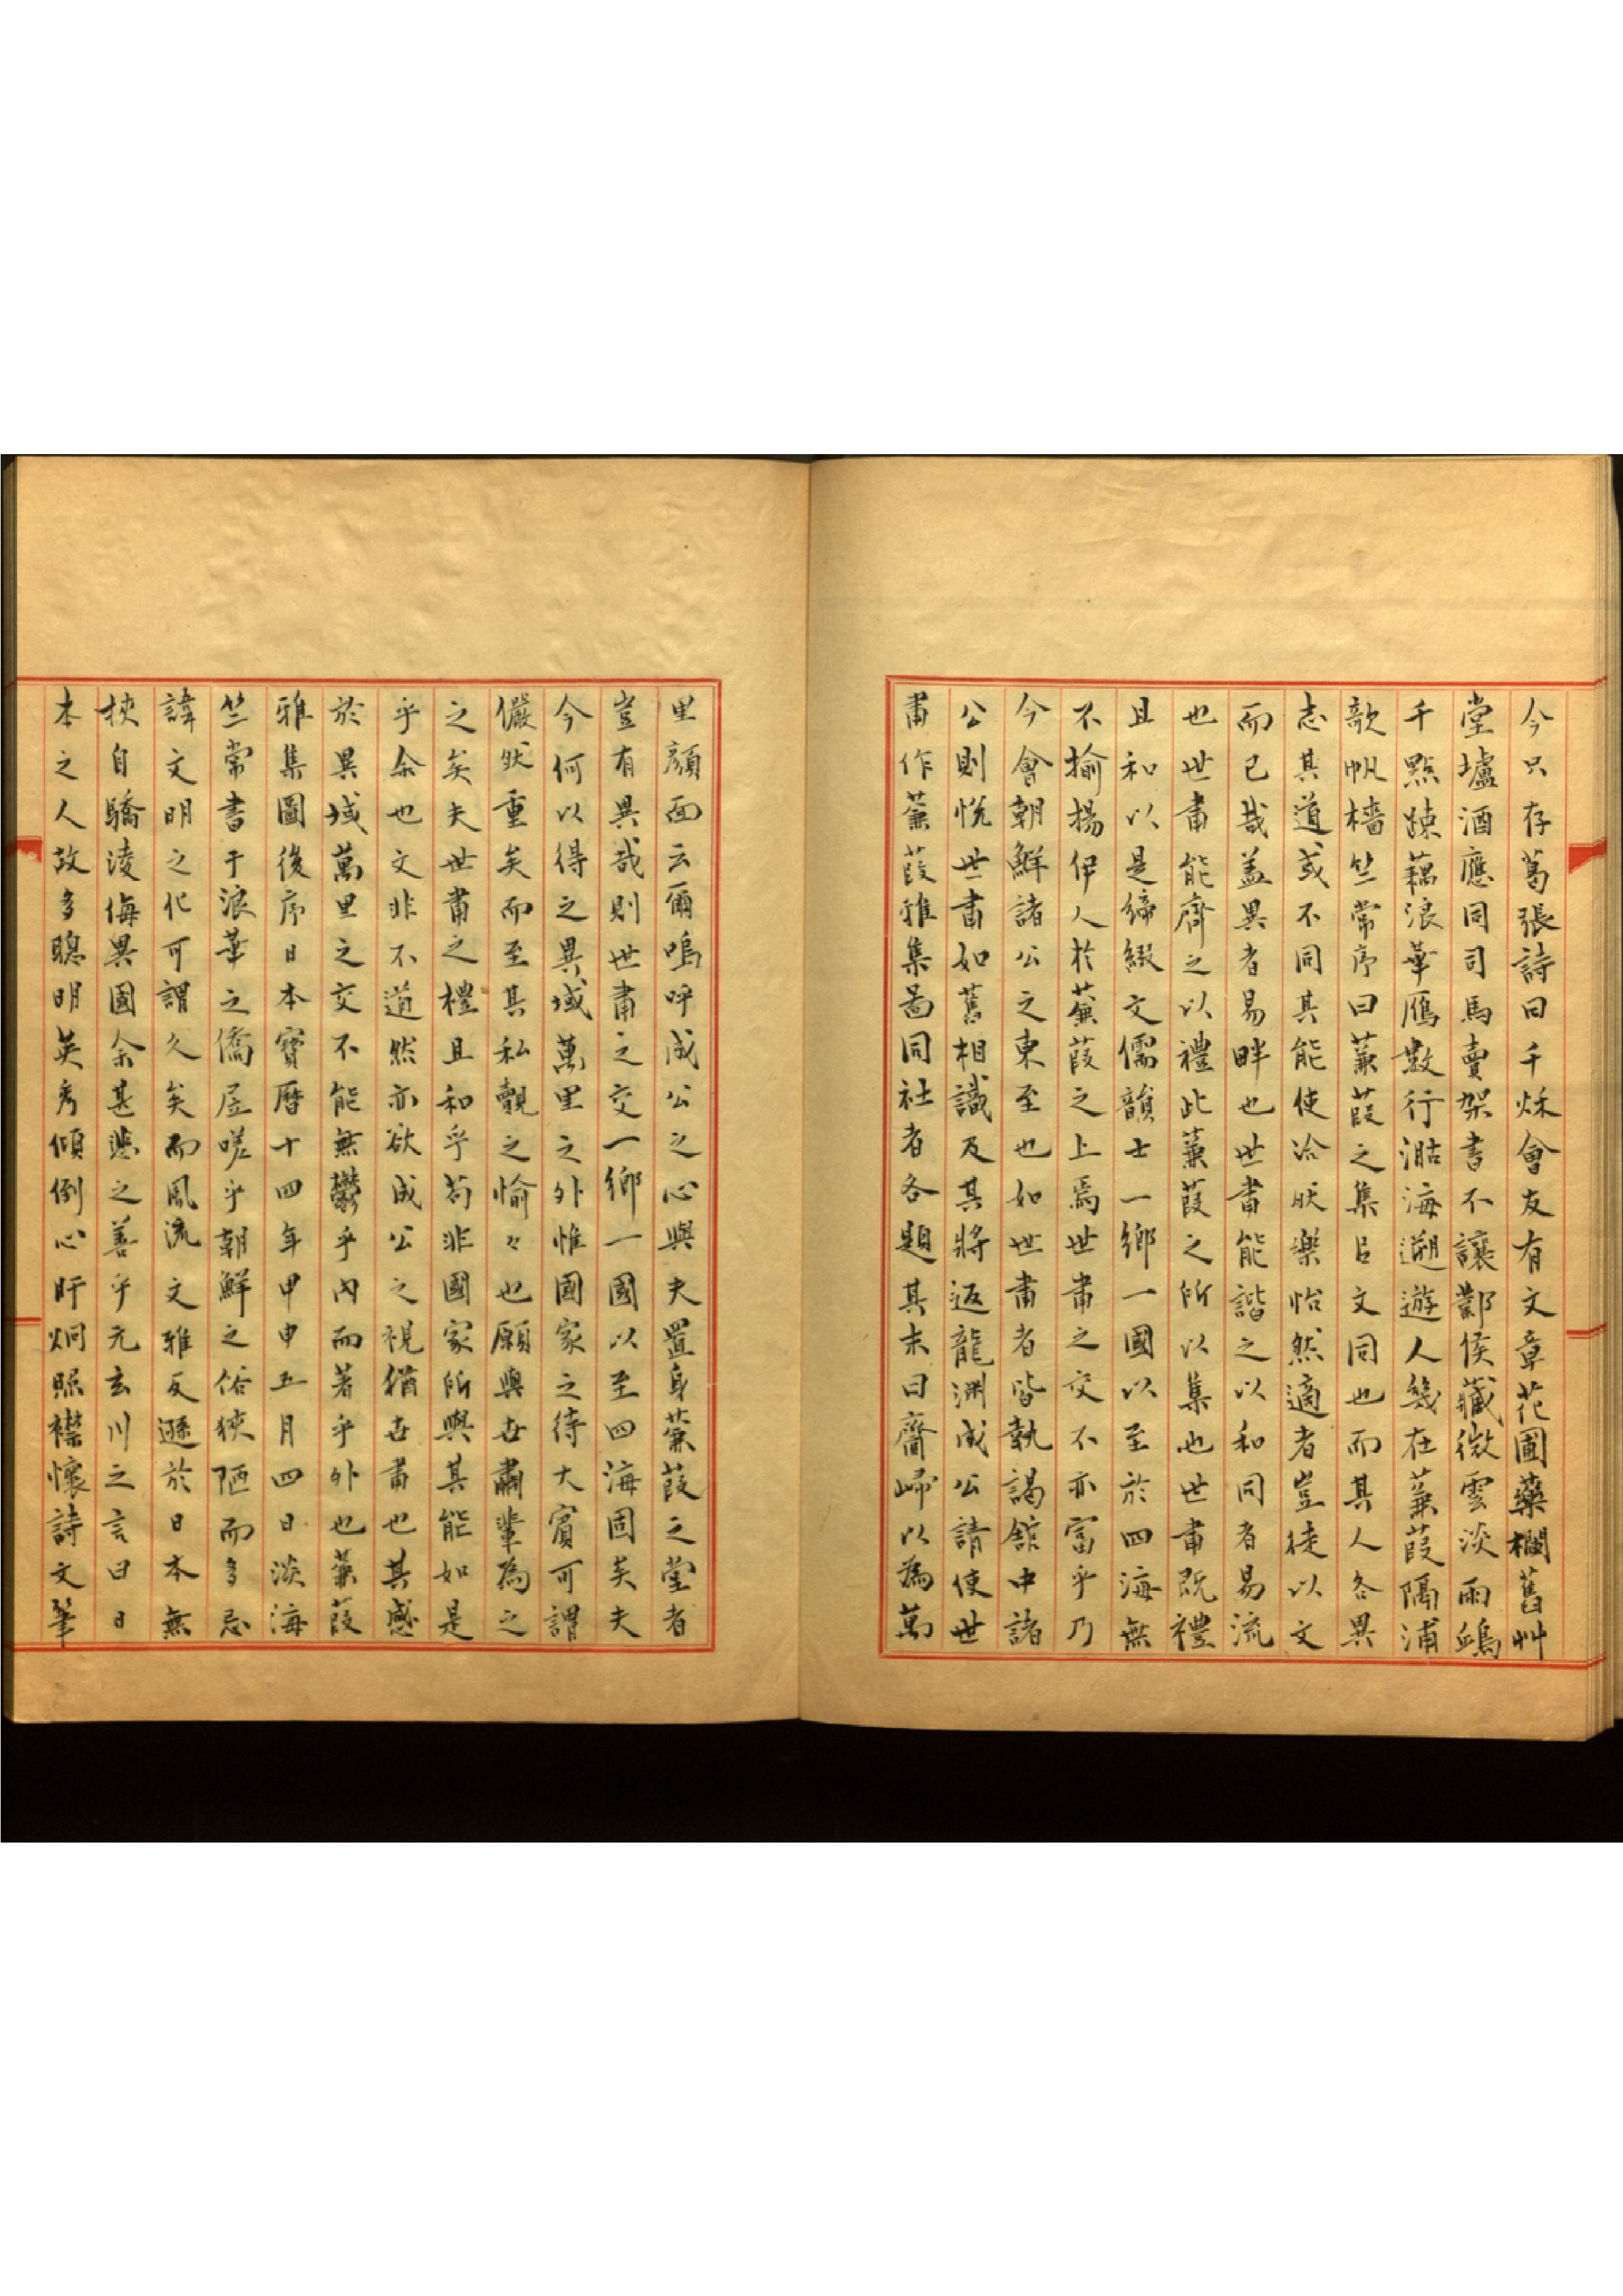 今只存葛張詩曰千秋會友有文章花圃藥欄舊艸
堂壚酒應同司馬賣架書不讓鄴侯藏微雲淡雨鴻
千點踈藕浪華鴈數行澔海遡遊人幾在蒹葭隔浦
歌帆檣竺常序曰蒹葭之集以文同也而其人各異
志其道或不同其能使洽肰樂怡然適者豈徒以文
而已哉盖異者易畔也世肅能諧之以和同者易流
也世肅能齊之以禮此蒹葭之所以集也世肅既禮
且和以是締綴文儒韻士一鄉一國以至於四海無
不揄揚伊人於蒹葭之上焉世肅之交不亦富乎乃
今會朝鮮諸公之東至也如世肅者皆執謁舘中諸
公則悅世肅如舊相識及其將返龍淵成公請使世
肅作蒹葭雅集啚同社者各題其末曰齎㱕以為萬
里顔面云爾嗚呼成公之心與夫置身蒹葭之堂者
豈有異哉則世肅之交一鄉一國以至四海固矣夫
今何以得之異域萬里之外惟國家之待大賓可謂
儼然重矣而至其私覿之愉々也願與世肅輩為之
之矣夫世肅之禮且和乎苟非國家所與其能如是
乎余也文非不道然亦欲成公之視猶世肅也其感
於異域萬里之交不能無鬱乎內而著乎外也蒹葭
雅集圖後序日本寶曆十四年甲申五月四日淡海
竺常書于浪華之僑居嗟乎朝鮮之俗狹陋而多忌
諱文明之化可謂久矣而風流文雅反遜於日本無
挾自驕淩侮異國余甚悲之善乎元玄川之言曰日
本之人故多聰明英秀傾倒心肝炯照襟懷詩文筆